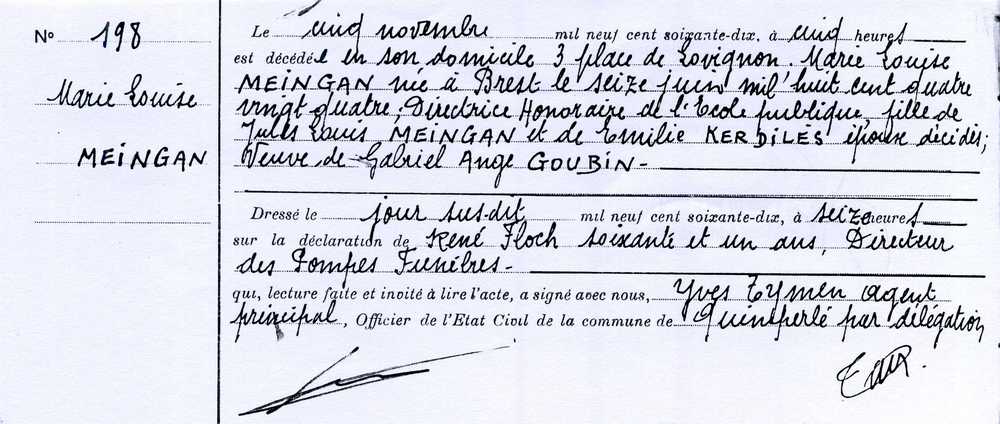 N° 198
Marie Louise
MEINGAN
Le cinq novembre mil neuf cent soixante-dix, à cinq heures
est décédée en son domicile 3 place de Lovignon. Marie Louise
MEINGAN née à Brest le seize juin mil huit cent quatre
vingt quatre; Directrice Honoraire de l'Ecole publique, fille de
Jules Louis MEINGAN et de Emilie KERDILÈS époux décédés;
Veuve de Gabriel Ange GOUBIN -
Dressé le jour sus-dit mil neuf cent soixante-dix, à seize heures
sur la déclaration de René Floch soixante et un ans, Directeur
des Pompes Funèbres -
qui, lecture faite et invité à lire l'acte, a signé avec nous, Yves Tymen agent
principal, Officier de l'Etat Civil de la commune de Quimperlé par délégation